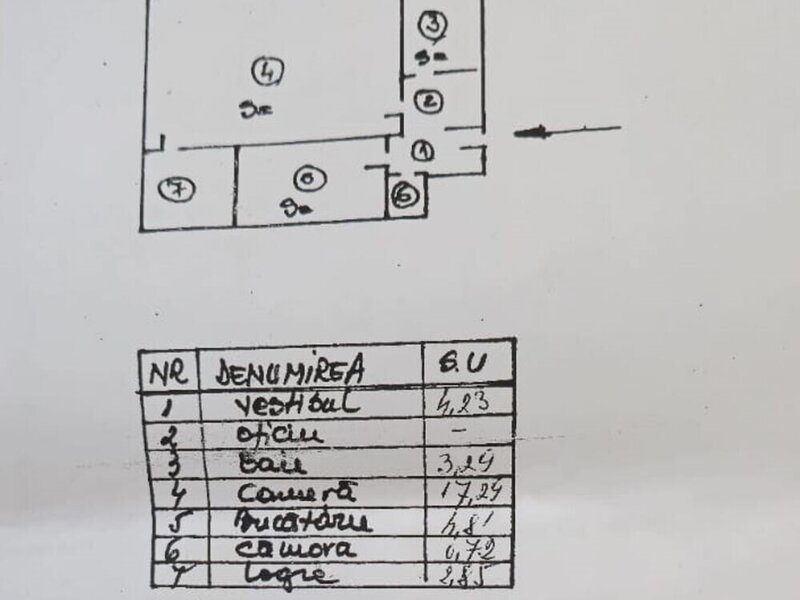 3
S=
4
S=
2
1
7
S=
6
NR DENUMIREA S.U
1 vestibul 4,23
2 oficiu -
3 baie 3,24
4 Cameră 17,24
5 Bucătărie 4,81
6 Camora 0,72
7 Logie 2,85